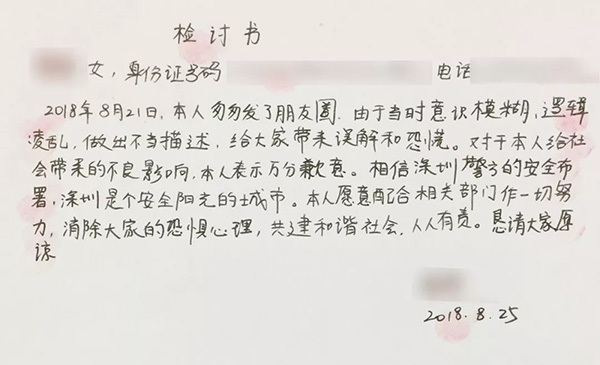 检讨书
女，身份证号码 电话
2018年8月21日，本人匆匆发了朋友圈．由于当时意识模糊，逻辑
凌乱，做出不当描述，给大家带来误解和恐慌。对于本人给社
会带来的不良影响，本人表示万分歉意。相信深圳警方的安全布
署，深圳是个安全阳光的城市。本人愿意配合相关部门作一切努
力，消除大家的恐惧心理，共建和谐社会，人人有责。恳请大家原
谅
2018.8.25